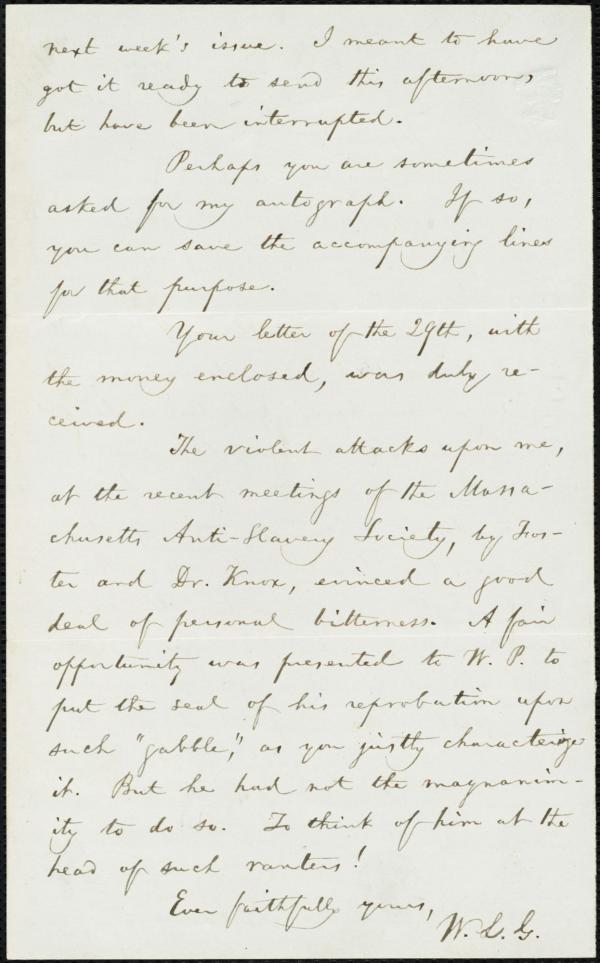 next week's issue. I meant to have
got it ready to send this afternoon,
but have been interrupted.
Perhaps you are sometimes
asked for my autograph. If so,
you can save the accompanying lines
for that purpose.
Your letter of the 29th, with
the money enclosed, was duly re-
ceived.
The violent attacks upon me,
at the recent meetings of the Massa-
chusetts Anti-Slavery Society, by Fos-
ter and Dr. Knox, evinced a good
deal of personal bitterness. A fair
opportunity was presented to W. P. to
put the seal of his reprobation upon
such "gabble," as you justly characterize
it. But he had not the magnanim-
ity to do so. To think of him at the
head of such ranters!
Ever faithfully yours,
W. L. G.